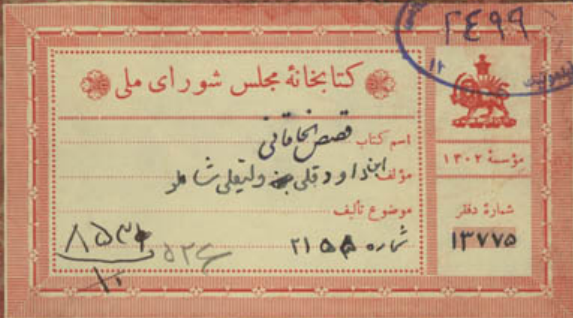 کتابخانهٔ مجلس شورای ملی
اسم کتاب قصص الخاقانی
مؤلف ابن داود قلی ولیقلی شاملو
موضوع تألیف
شماره ۲۱۵۵
مؤسسهٔ ۱۳۰۲
شمارهٔ دفتر
۱۳۷۷۵
۲۴۹۹
۱۲